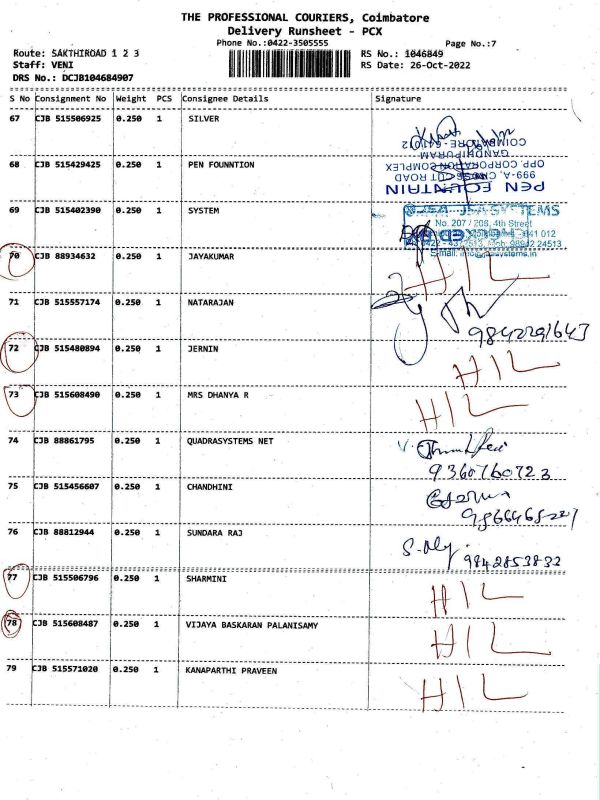 THE PROFESSIONAL COURIERS, Coimbatore
Delivery Runsheet - PCX
Phone No.:0422-3505555
Page No.:7
Route: SAKTHIROAD 1 2 3
RS No.: 1046849
Staff: VENI
RS Date: 26-Oct-2022
DRS No.: DCJB104684907
S No Consignment No Weight PCS Consignee Details Signature
67 CJB 515506925 0.250 1 SILVER
COIMBATORE - 641012
GANDHIPURAM
68 CJB 515429425 0.250 1 PEN FOUNNTION
OPP. CORPORATION COMPLEX
999-A, CROSS CUT ROAD
PEN FOUNTAIN
69 CJB 515402390 0.250 1 SYSTEM
JSA SYSTEMS
No. 207 / 208, 4th Street
70 CJB 88934632 0.250 1 JAYAKUMAR HIL
71 CJB 515557174 0.250 1 NATARAJAN
9842291643
72 CJB 515480894 0.250 1 JERNIN HIL
73 CJB 515608490 0.250 1 MRS DHANYA R HIL
74 CJB 88861795 0.250 1 QUADRASYSTEMS NET
9360760723
75 CJB 515456607 0.250 1 CHANDHINI
76 CJB 88812944 0.250 1 SUNDARA RAJ
9842853832
77 CJB 515506796 0.250 1 SHARMINI HIL
78 CJB 515608487 0.250 1 VIJAYA BASKARAN PALANISAMY HIL
79 CJB 515571020 0.250 1 KANAPARTHI PRAVEEN HIL